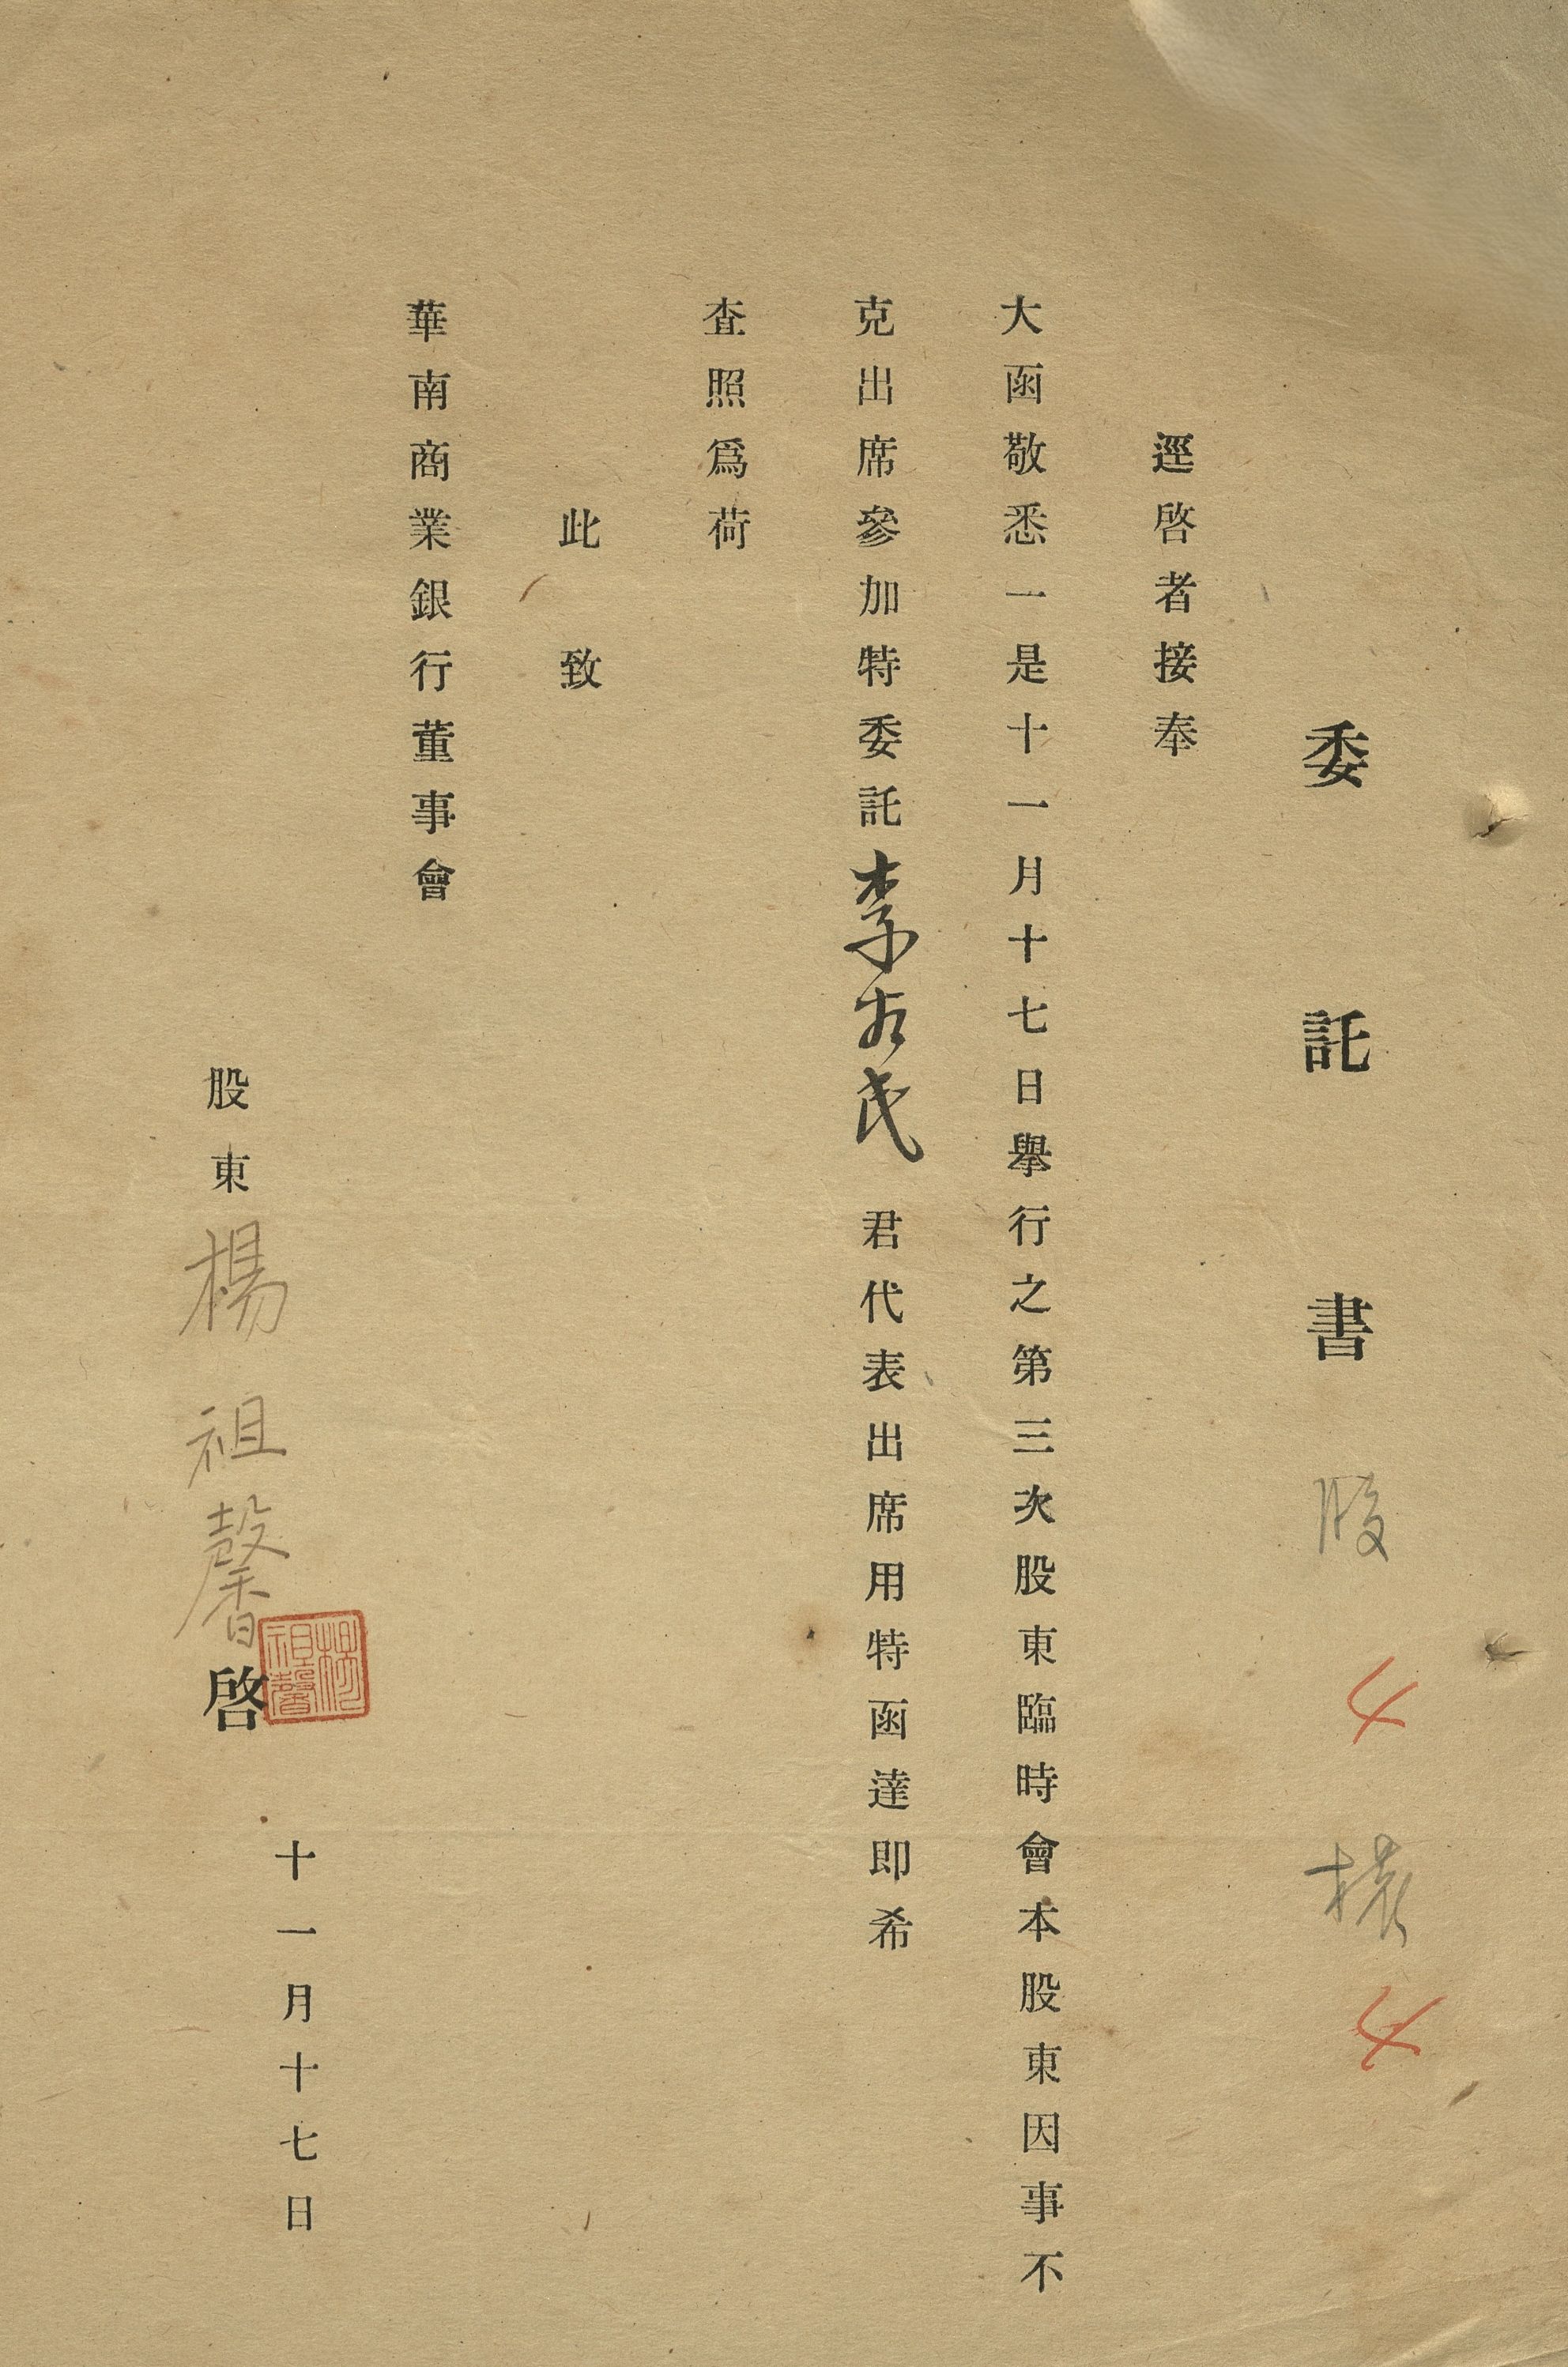 委託書 股 4 權 4
逕啓者接奉
大函敬悉一是十一月十七日舉行之第三次股東臨時會本股東因事不
克出席參加特委託李 民 君代表出席用特函達即希
查照爲荷
此致
華南商業銀行董事會
股東 楊祖馨 啓
楊祖馨
十一月十七日